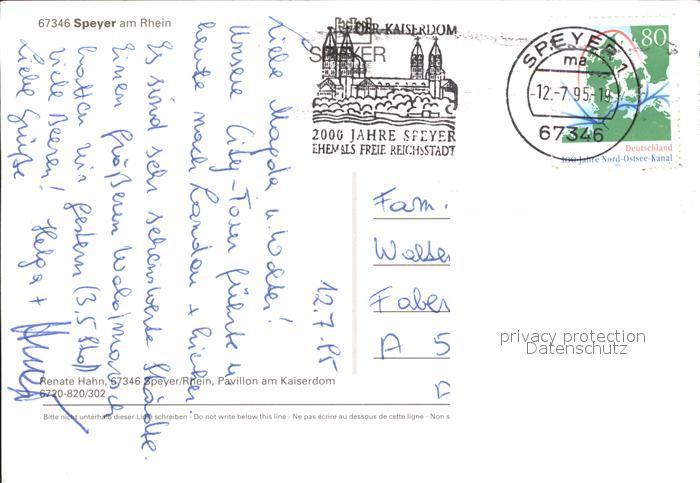 67346 Speyer am Rhein
DER KAISERDOM
SPEYER
2000 JAHRE SPEYER
EHEMALS FREIE REICHSSTADT
SPEYER 1
ma
-12.-7.95-19
67346
80
Deutschland
100 Jahre Nord-Ostsee-Kanal
12.7.95
Liebe Magda u. Walter!
Unsere City-Tour führte u
heute nach Landau + hierher.
Es sind sehr sehenswerte Städte.
Einen größeren Waldmarsch
hatten wir gestern (3,5 Std)
viele Beeren!
Liebe Grüße Helga +
Fam.
Walter
Faber
A 5
privacy protection
Datenschutz
Renate Hahn, 67346 Speyer/Rhein, Pavillon am Kaiserdom
6720-820/302
Bitte nicht unterhalb dieser Linie schreiben - Do not write below this line - Ne pas écrire au dessous de cette ligne - Non s